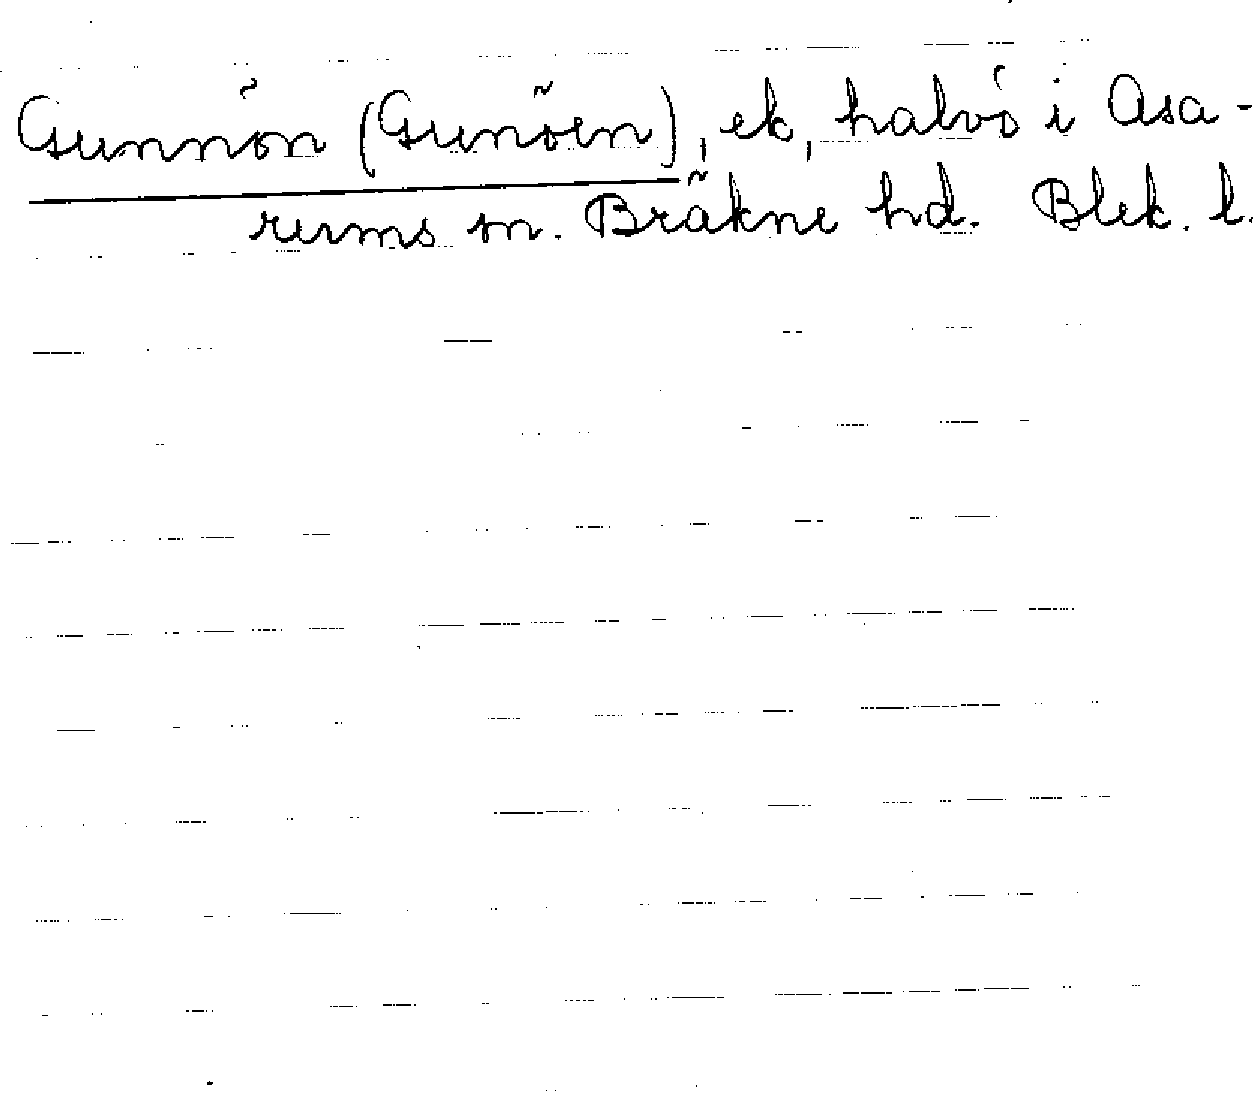 Gunnön (Gunöen), ek, halvö i Asa-
rums sn. Bräkne hd. Blek. l.